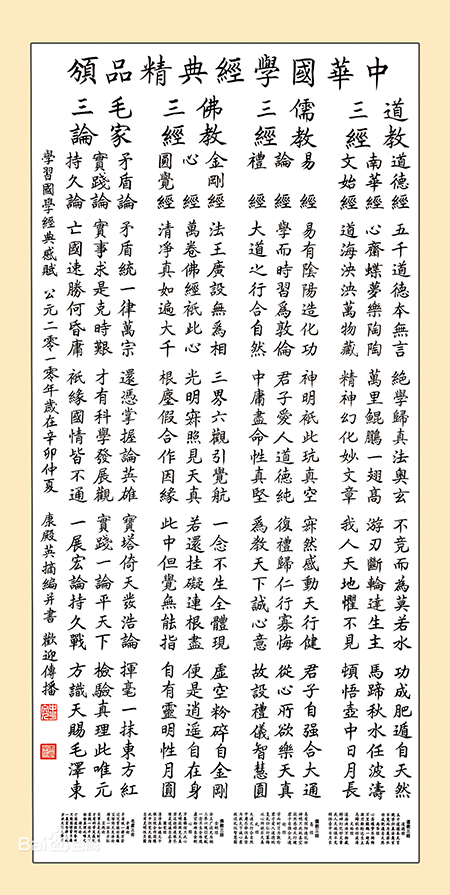 中華國學經典精品頌
道教三經
道德經 五千道德本無言 絕學歸真法奧玄 不竞而為莫若水 功成肥遁自天然
南華經 心齋蝶夢樂陶陶 萬里鯤鵬一翅高 游刃斷輪達生主 馬蹄秋水任波濤
文始經 道海泱泱萬物藏 精神幻化妙文章 我人天地懼不見 頓悟壺中日月長
儒教三經
易經 易有陰陽造化功 神明祇此玩真空 寂然感動天行健 君子自强合大通
論經 學而時習爲敦倫 君子愛人道德純 復禮歸仁行寡悔 從心所欲樂天真
禮經 大道之行合自然 中庸盡命性真堅 為教天下誠心意 故設禮儀智慧圓
佛教三經
金剛經 法王廣設無為相 三界六觀引覺航 一念不生全體現 虛空粉碎自金剛
心經 萬卷佛經祇此心 光明寂照見天真 若還挂礙連根盡 便是逍遥自在身
圓覺經 清凈真如遍大千 根塵假合作因緣 此中但覺無能指 自有靈明性月圓
毛家三論
矛盾論 矛盾統一律萬宗 還憑掌握論英雄 寶塔倚天發浩論 揮毫一抹東方紅
實踐論 實事求是克時艱 才有科學發展觀 實踐一論平天下 檢驗真理此唯元
持久論 亡國速勝何昏庸 祇緣國情皆不通 一展宏論持久戰 方識天賜毛澤東
學習國學經典感賦 公元二零一零年歲在辛卯仲夏 康殿英摘編并書 歡迎傳播